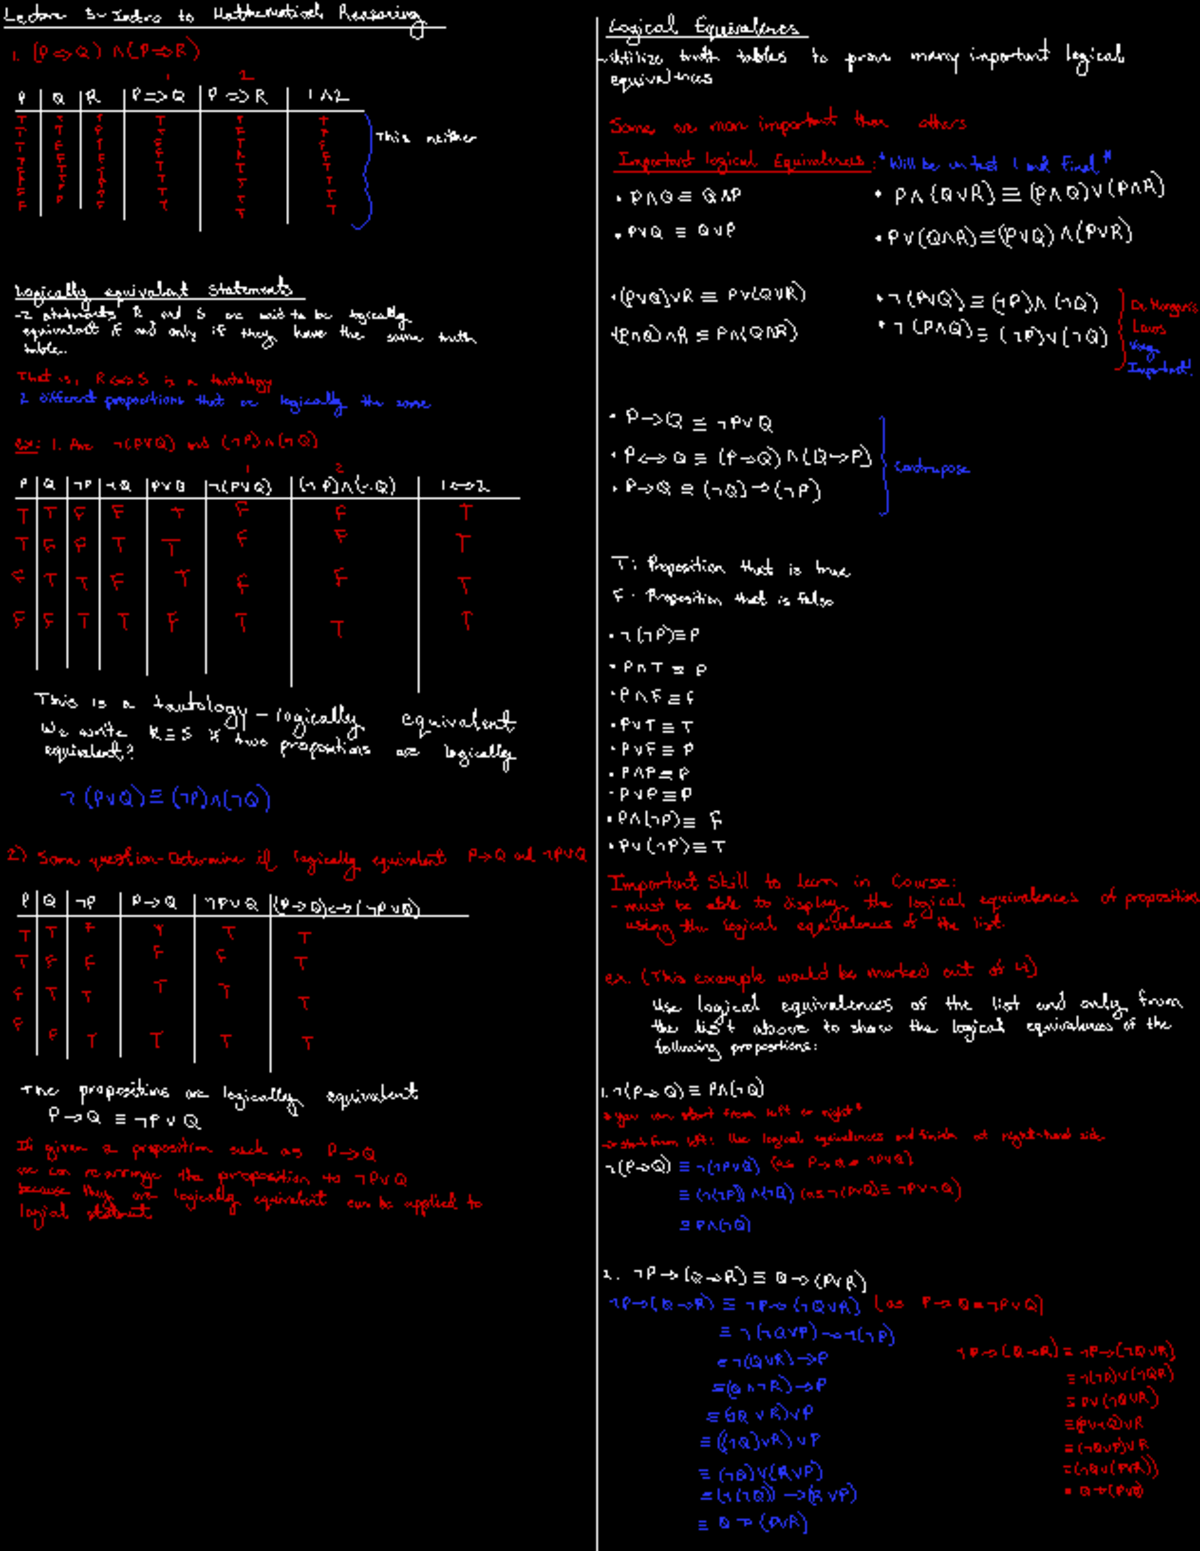 Lecture 3 - Intro to Mathematical Reasoning
1. (P⇒Q) ∧ (P⇒R)
1 2
P Q R P⇒Q P⇒R 1∧2
This neither
Logically equivalent Statements
- 2 statements R and S are said to be logically
equivalent if and only if they have the same truth
table.
That is, R⇔S is a tautology
2 different propositions that are logically the same
ex: 1. Are ¬(P∨Q) and (¬P)∧(¬Q)
1 2
P Q ¬P ¬Q P∨Q ¬(P∨Q) (¬P)∧(¬Q) 1↔2
T T F F T F F T
T F F T T F F T
F T T F T F F T
F F T T F T T T
This is a tautology - logically equivalent
We write R≡S if two propositions are logically
equivalent?
¬(P∨Q) ≡ (¬P)∧(¬Q)
2) Same question - Determine if logically equivalent P→Q and ¬P∨Q
P Q ¬P P→Q ¬P∨Q (P→Q)↔(¬P∨Q)
T T F T T T
T F F F F T
F T T T T T
F F T T T T
The propositions are logically equivalent
P→Q ≡ ¬P∨Q
If given a proposition such as P→Q
we can rearrange the proposition to ¬P∨Q
because they are logically equivalent can be applied to
logical statment
Logical Equivalences
- Utilize truth tables to prove many important logical
equivalences
Some are more important than others
Important logical Equivalences: *Will be on test 1 and Final*
• P∧Q ≡ Q∧P
• P∨Q ≡ Q∨P
• P∧(Q∨R) ≡ (P∧Q)∨(P∧R)
• P∨(Q∧R) ≡ (P∨Q)∧(P∨R)
• (P∨Q)∨R ≡ P∨(Q∨R)
• (P∧Q)∧R ≡ P∧(Q∧R)
• ¬(P∨Q) ≡ (¬P)∧(¬Q)
• ¬(P∧Q) ≡ (¬P)∨(¬Q)
De Morgan's
Laws
Very
Important!
• P→Q ≡ ¬P∨Q
• P↔Q ≡ (P→Q)∧(Q→P)
• P→Q ≡ (¬Q)→(¬P)
Contrapose
T: Proposition that is true
F: Proposition that is false
• ¬(¬P) ≡ P
• P∧T ≡ P
• P∧F ≡ F
• P∨T ≡ T
• P∨F ≡ P
• P∧P ≡ P
• P∨P ≡ P
• P∧(¬P) ≡ F
• P∨(¬P) ≡ T
Important Skill to learn in Course:
- must be able to display the logical equivalences of proposition
using the logical equivalences of the list.
ex. (This example would be marked out of 4)
Use logical equivalences of the list and only from
the list above to show the logical equivalences of the
following propositions:
1. ¬(P→Q) ≡ P∧(¬Q)
* you can start from left or right *
→ start from left: Use logical equivalences and finish at right-hand side
¬(P→Q) ≡ ¬(¬P∨Q) (as P→Q ≡ ¬P∨Q)
≡ (¬(¬P))∧(¬Q) (as ¬(P∨Q) ≡ ¬P∨¬Q)
≡ P∧(¬Q)
2. ¬P→(Q→R) ≡ Q→(P∨R)
¬P→(Q→R) ≡ ¬P→(¬Q∨R) (as P→Q ≡ ¬P∨Q)
≡ ¬(¬Q∨P)→¬(¬P)
≡ ¬(Q∨R)→P
≡ (Q∧¬R)→P
≡ (¬Q∨R)∨P
≡ ((¬Q)∨R)∨P
≡ (¬Q)∨(R∨P)
≡ (¬(¬Q))→(R∨P)
≡ Q→(P∨R)
¬P→(Q→R) ≡ ¬P→(¬Q∨R)
≡ ¬(¬P)∨(¬Q∨R)
≡ P∨(¬Q∨R)
≡ (P∨¬Q)∨R
≡ (¬Q∨P)∨R
≡ (¬Q∨(P∨R))
≡ Q→(P∨Q)